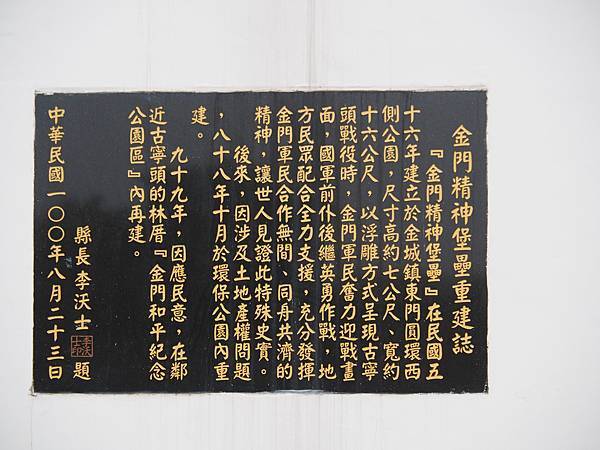 金門精神堡壘重建誌
『金門精神堡壘』在民國五
十六年建立於金城鎮東門圓環西
側公園，尺寸高約七公尺、寬約
十六公尺，以浮雕方式呈現古寧
頭戰役時，金門軍民奮力迎戰畫
面，國軍前仆後繼英勇作戰，地
方民眾配合全力支援，充分發揮
金門軍民合作無間、同舟共濟的
精神，讓世人見證此特殊史實。
後來，因涉及土地產權問題
，八十八年十月於環保公園內重
建。
九十九年，因應民意，在鄰
近古寧頭的林厝『金門和平紀念
公園區』內再建。
縣長 李沃士 題
中華民國一〇〇年八月二十三日